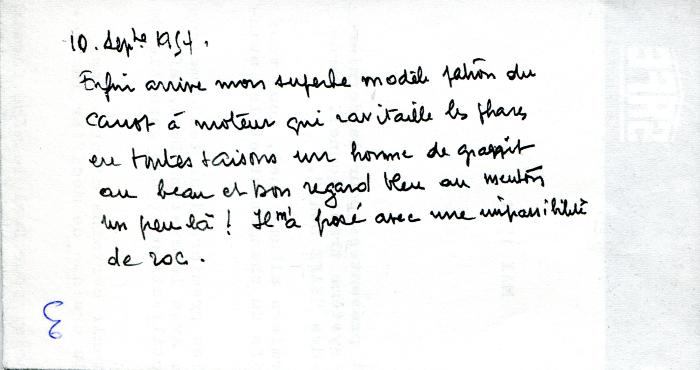 10. Septbre 1954.
Enfin arrive mon superbe modèle patron du
canot à moteur qui ravitaille les phares
en toutes saisons un homme de granit
au beau et bon regard bleu au menton
un peu là ! Il m'a posé avec une impassibilité
de roc.